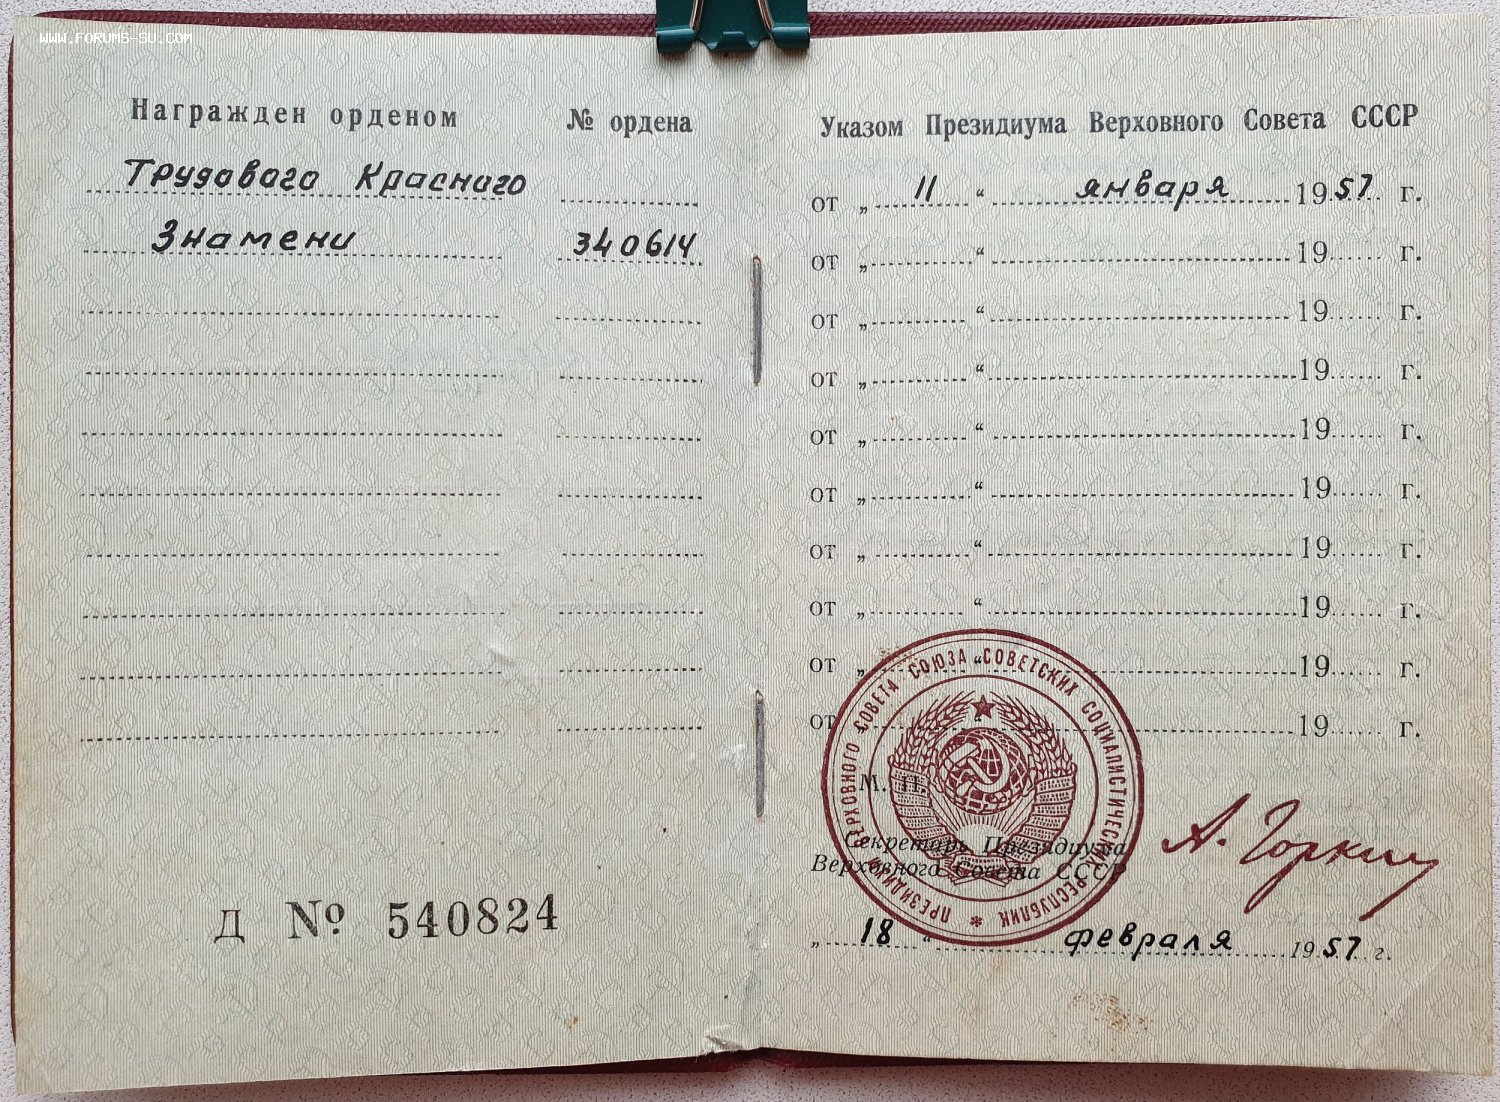 WWW.FORUMS-SU.COM
Награжден орденом № ордена
Трудового Красного
Знамени 340614
Д № 540824
Указом Президиума Верховного Совета СССР
от „ 11 “ января 1957 г.
от „ “ 19 г.
от „ “ 19 г.
от „ “ 19 г.
от „ “ 19 г.
от „ “ 19 г.
от „ “ 19 г.
от „ “ 19 г.
от „ “ 19 г.
от „ “ 19 г.
ПРЕЗИДИУМ ВЕРХОВНОГО СОВЕТА СОЮЗА СОВЕТСКИХ СОЦИАЛИСТИЧЕСКИХ РЕСПУБЛИК *
М. П.
Секретарь Президиума
Верховного Совета СССР
А. Горкин
„ 18 “ февраля 1957 г.